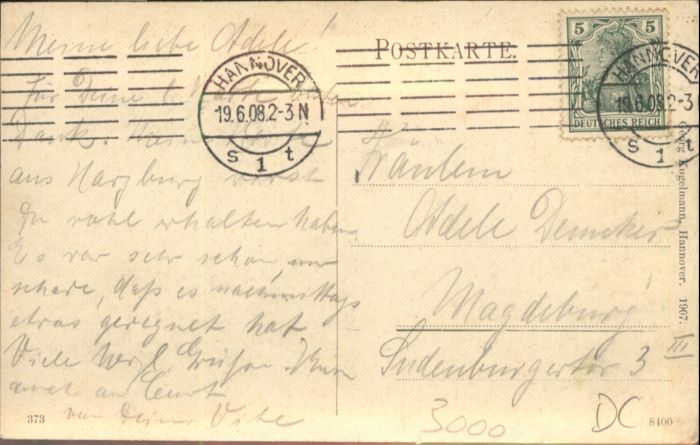 Meine liebe Adele!
Für Deine l. Karte vielen
Dank.
aus Harzburg wirst
Du wohl erhalten haben.
Es war sehr schön, nur
schade, daß es nachmittags
etwas geregnet hat
Viele herzl. Grüße.
an Curt
von Deiner
373
POSTKARTE.
5 5
DEUTSCHES REICH
HANNOVER
19.6.08.2-3N
S 1 t
HANNOVER
19.6.08.2-3
S 1 t
Fräulein
Adele Demcker
Magdeburg
Sudenburgertor 3
III
3000
DC
8400
Georg Kugelmann, Hannover. 1907.